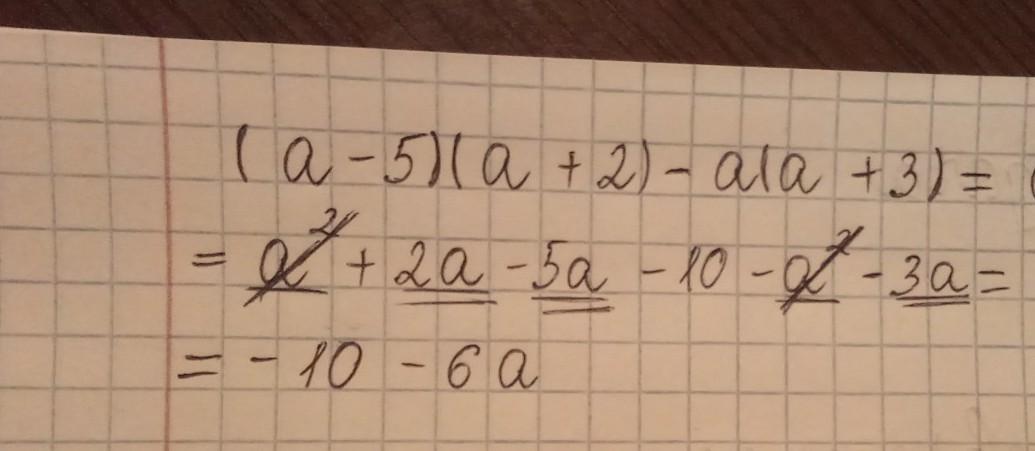 (a - 5)(a + 2) - a(a + 3) =
= a² + 2a - 5a - 10 - a² - 3a =
= - 10 - 6a